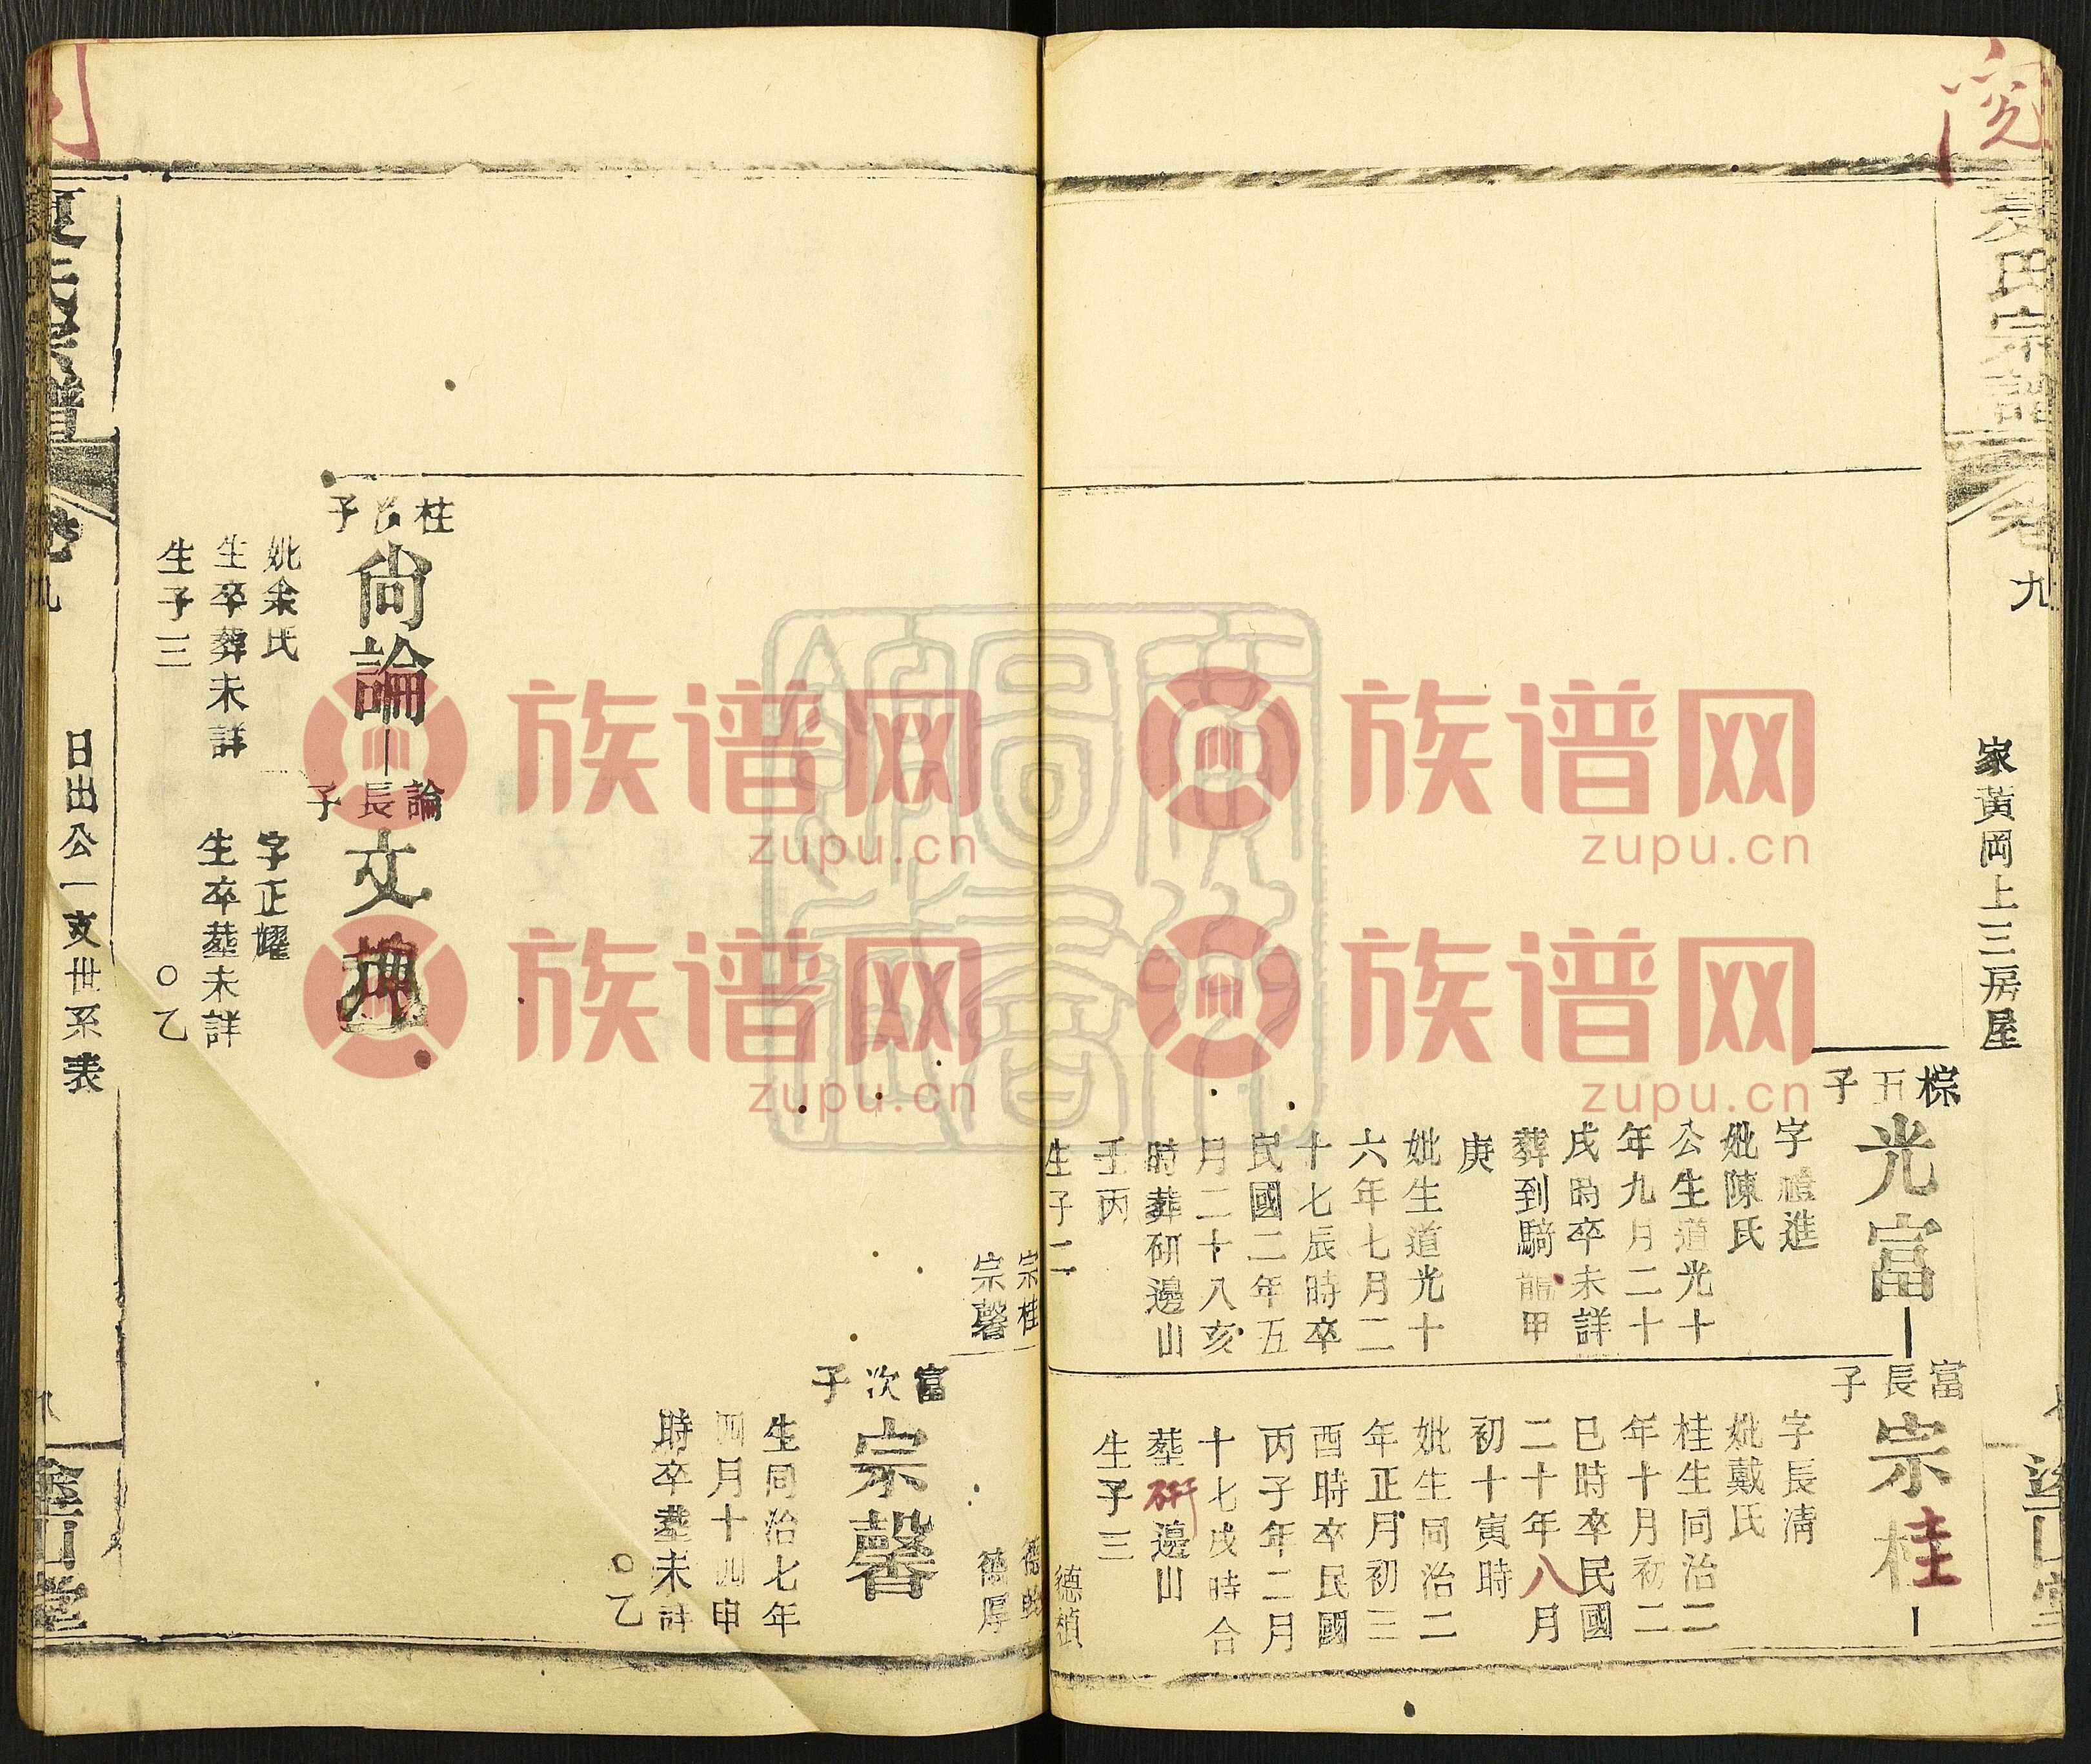 夏氏宗譜
卷九
家黃岡上三房屋
棕五子
光富
字禮進
妣陳氏
公生道光十
年九月二十
戌時卒未詳
葬到騎龍甲
庚
妣生道光十
六年七月二
十七辰時卒
民國二年五
月二十八亥
時葬研邊山
壬丙
生子二
宗桂
宗馨
富長子
宗桂
字長清
妣戴氏
桂生同治二
年十月初二
巳時卒民國
二十年八月
初十寅時
妣生同治二
年正月初三
酉時卒民國
丙子年二月
十七戌時合
塟研邊山
生子三
德楨
德厚
富次子
宗馨
生同治七年
四月十四申
時卒塟未詳
〇乙
尙論
妣余氏
生卒葬未詳
生子三
論長子
文典
字正耀
生卒塟未詳
〇乙
日出公一支世系表
族谱网
zupu.cn
族谱网
zupu.cn
族谱网
zupu.cn
族谱网
zupu.cn